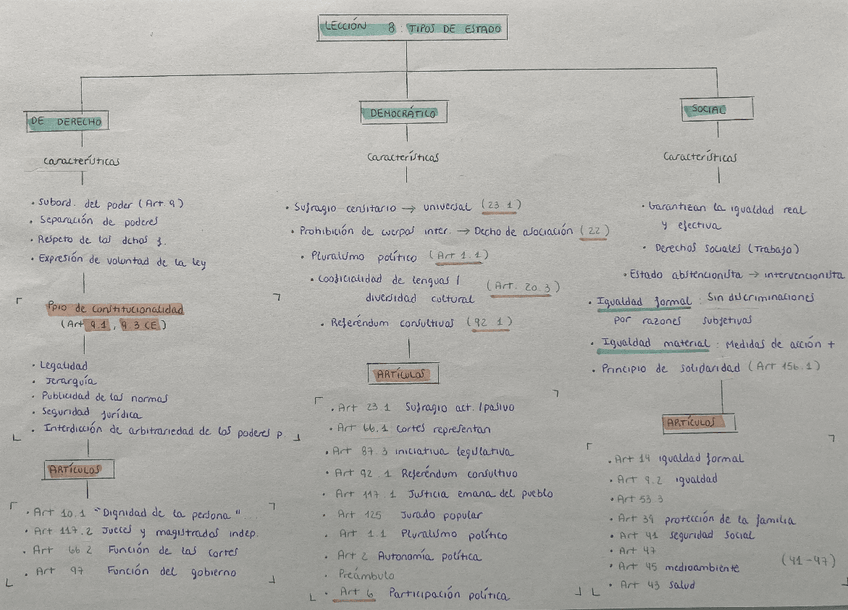 LECCIÓN 8: TIPOS DE ESTADO
DE DERECHO
Características
• Subord. del poder (Art 9)
• Separación de poderes
• Respeto de los dchos f.
• Expresión de voluntad de la ley
Ppio de constitucionalidad
(Art 9.1, 9.3 CE)
• Legalidad
• Jerarquía
• Publicidad de las normas
• Seguridad jurídica
• Interdicción de arbitrariedad de los poderes p.
ARTÍCULOS
• Art 10.1 "Dignidad de la persona"
• Art 117.2 Jueces y magistrados indep.
• Art 66.2 Función de las cortes
• Art 97 Función del gobierno
DEMOCRÁTICO
Características
• Sufragio censitario → universal (23.1)
• Prohibición de cuerpos inter. → Decho de asociación (22)
• Pluralismo político (Art 1.1)
• Cooficialidad de lenguas / (Art. 20.3)
diversidad cultural
• Referéndum consultivos (92.1)
ARTÍCULOS
• Art 23.1 Sufragio act. /pasivo
• Art 66.1 Cortes representan
• Art 87.3 iniciativa legislativa
• Art 92.1 Referéndum consultivo
• Art 117.1 Justicia emana del pueblo
• Art 125 Jurado popular
• Art 1.1 Pluralismo político
• Art 2 Autonomía política
• Preámbulo
• Art 6 Participación política
SOCIAL
Características
• Garantizan la igualdad real
y efectiva
• Derechos sociales (Trabajo)
• Estado abstencionista → intervencionista
• Igualdad formal: Sin discriminaciones
por razones subjetivas
• Igualdad material: Medidas de acción +
• Principio de solidaridad (Art 156.1)
ARTÍCULOS
• Art 14 igualdad formal
• Art 9.2 igualdad
• Art 53.3
• Art 39 protección de la familia
• Art 41 seguridad social
• Art 47
• Art 45 medioambiente (41-47)
• Art 43 salud